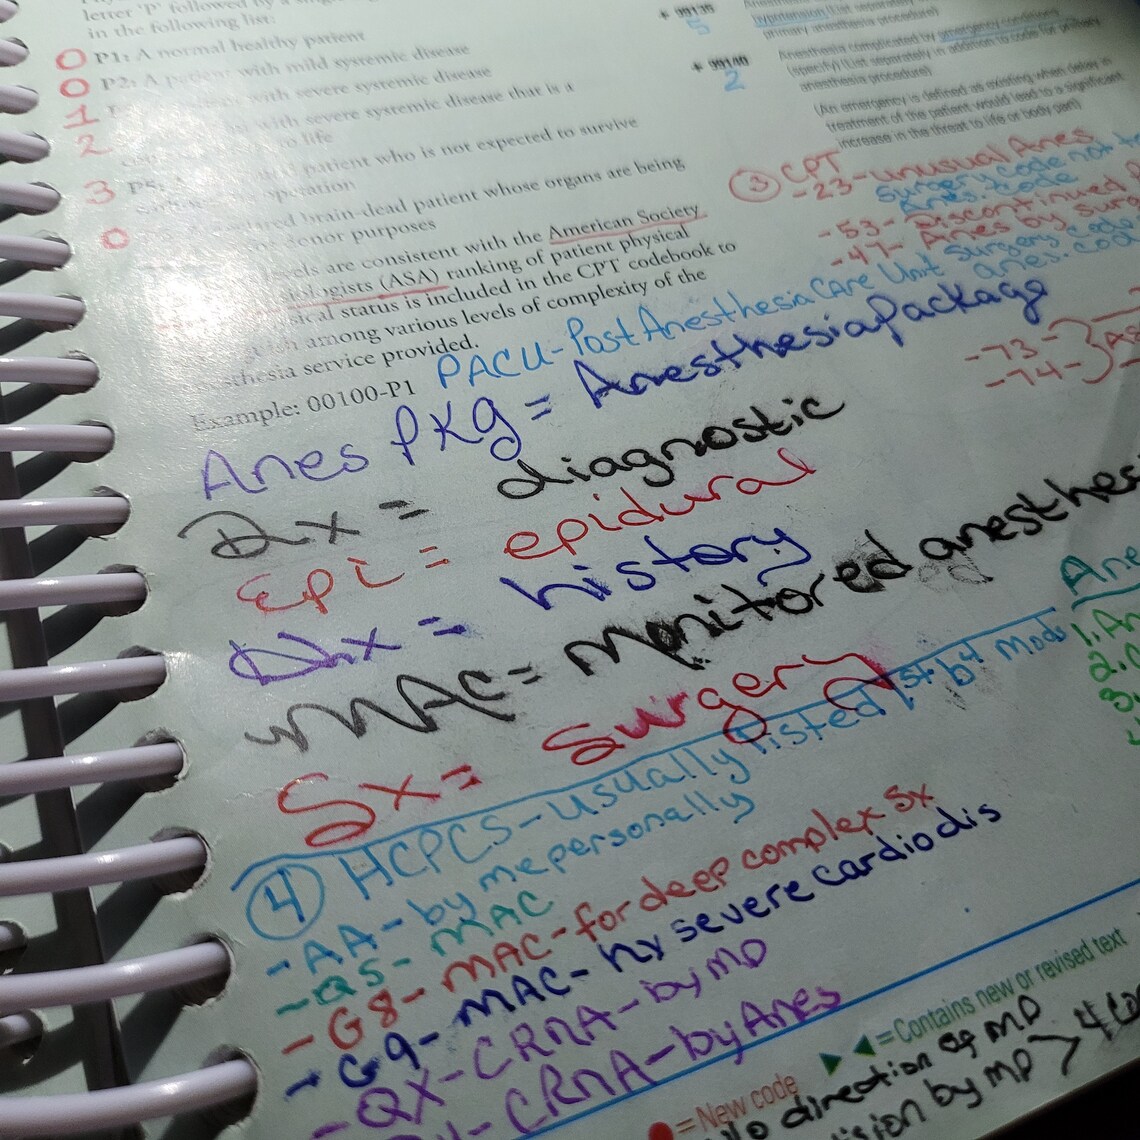 letter 'P' followed by a
in the following list:
0 P1: A normal healthy patient
0 P2: A patient with mild systemic disease
1 with severe systemic disease
2 with severe systemic disease that is a
to life
3 P5: patient who is not expected to survive
operation
0 brain-dead patient whose organs are being
donor purposes
levels are consistent with the American Society
(ASA) ranking of patient physical
status is included in the CPT codebook to
among various levels of complexity of the
service provided.
Example: 00100-P1
+ 99135
5
+ 99140
2
primary anesthesia procedure)
Anesthesia complicated by emergency conditions
(specify) (List separately in addition to code for primary
anesthesia procedure)
(An emergency is defined as existing when delay in
treatment of the patient would lead to a significant
increase in the threat to life or body part)
3 CPT
-23-unusual Anes
Surgery code not
Anes. code
-53- Discontinued
-47- Anes by
Surgery code
anes.
-73-
-74-
PACU-Post Anesthesia Care Unit
Anes Pkg = Anesthesia Package
Dx = diagnostic
Epi = epidural
Hx = history
MAC= Monitored
Sx= Surgery
4 HCPCS-usually listed 1st b4
-AA-by me personally
-QS-MAC
-G8-MAC-for deep complex Sx
-G9-MAC-hx severe cardio dis
-QX-CRNA-by MD
CRNA-by Anes
1.
2.
3.
=Contains new or revised text
=New code
direction of MD
by MD > 4